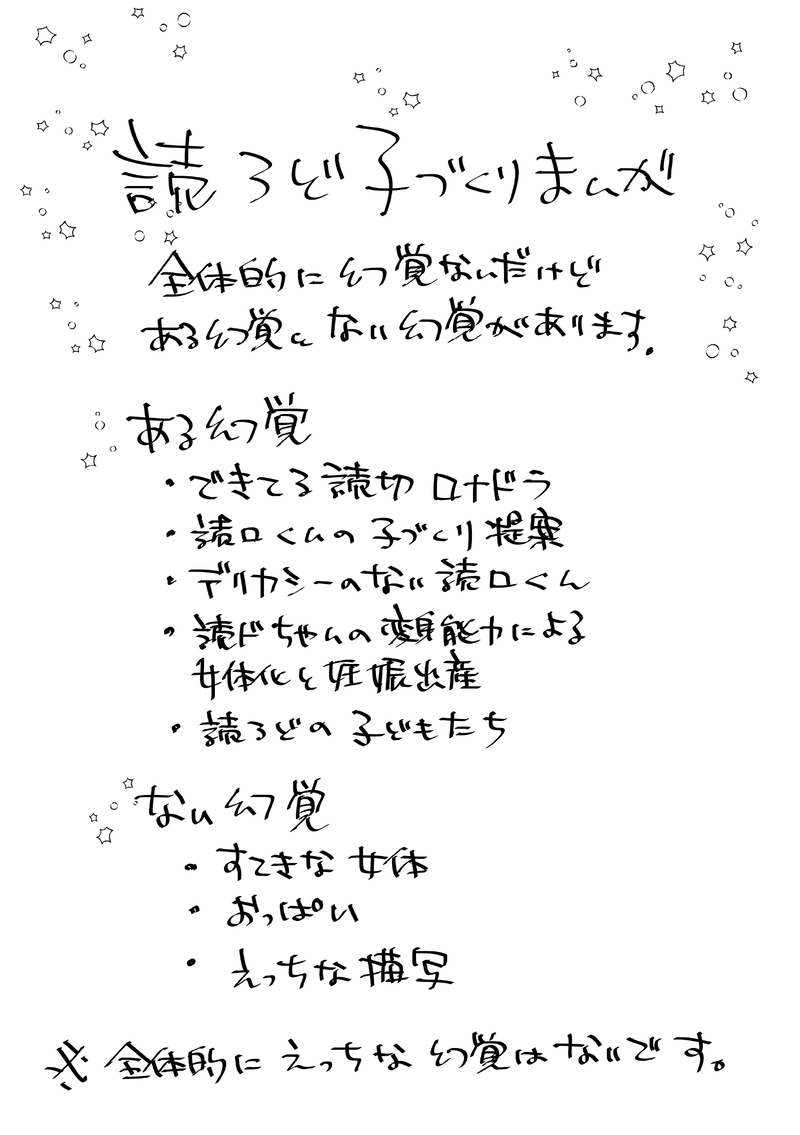 読ろど子づくりまんが
全体的に幻覚なんだけど
ある幻覚とない幻覚があります.
ある幻覚
・できてる読切ロナドラ
・読ロくんの子づくり提案
・デリカシーのない読ロくん
・読ドちゃんの変身能力による
女体化と妊娠出産
・読ろどの子どもたち
ない幻覚
・すてきな女体
・おっぱい
・えっちな描写
※全体的にえっちな幻覚はないです。